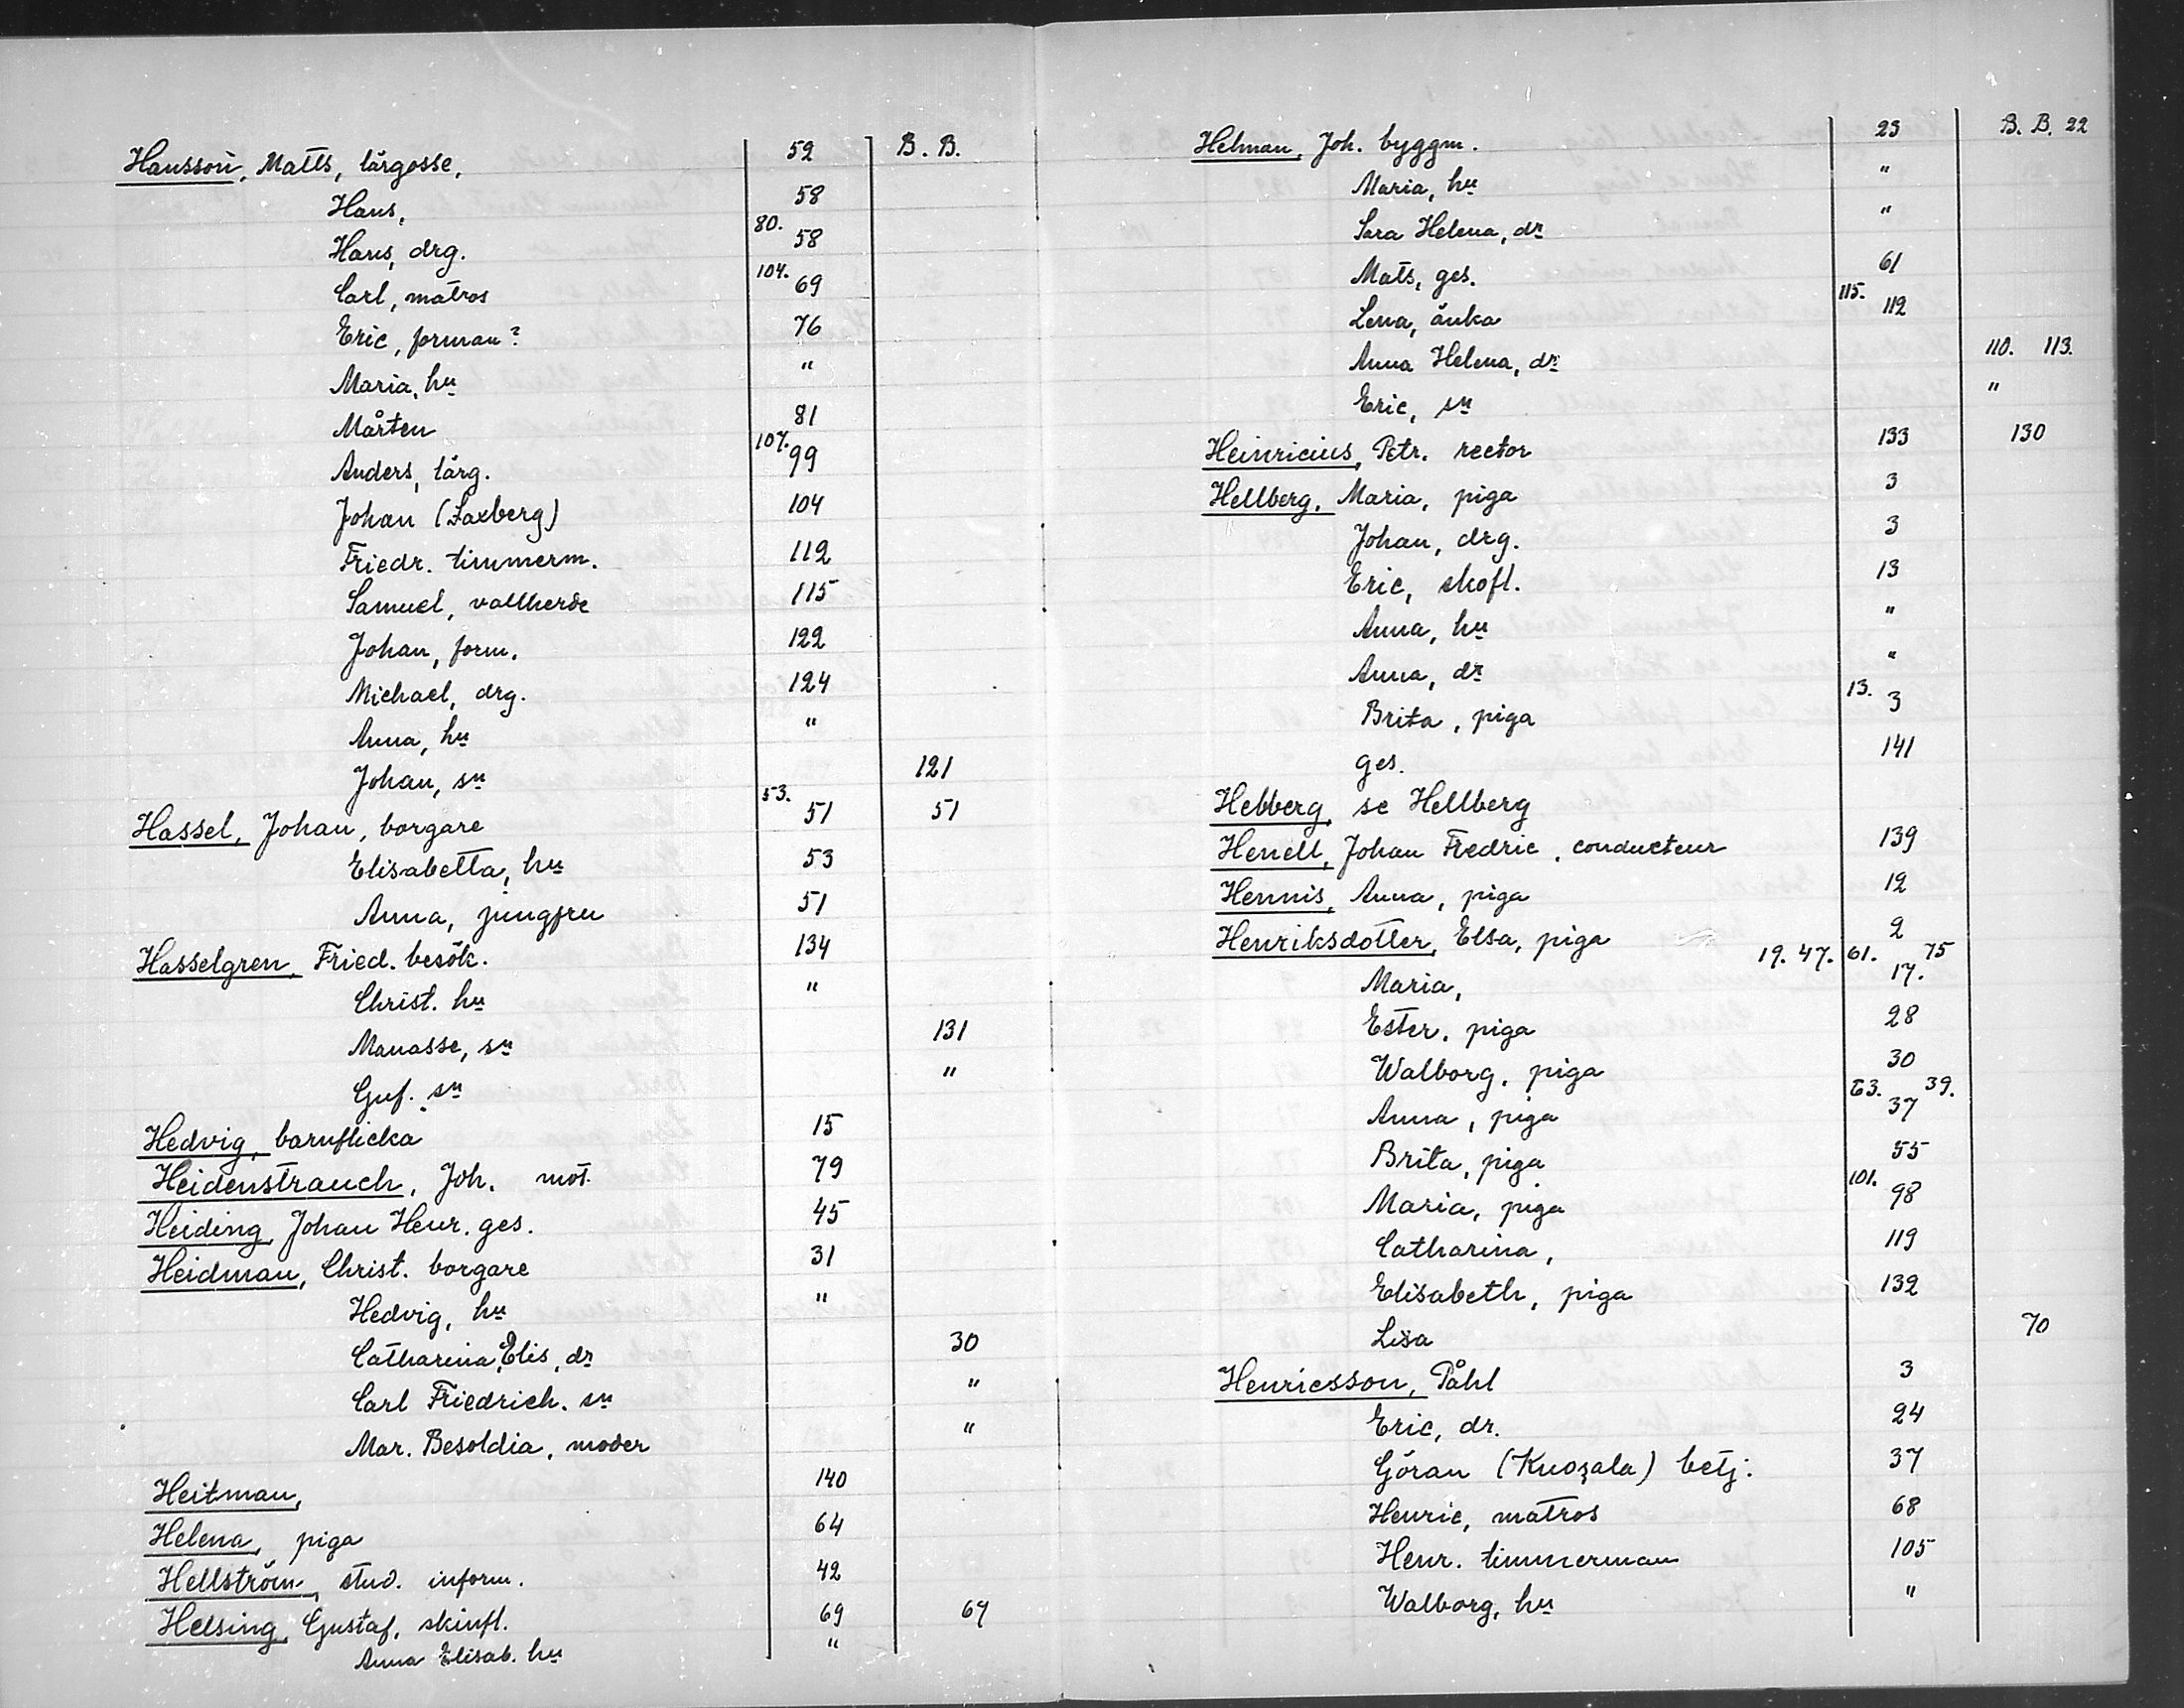 Hansson, Matts, lärgosse, 52 B. B.
Hans, 58
Hans, drg. 80. 58
Carl, matros 104. 69
Eric, forman? 76
Maria, hu "
Mårten 81
Anders, lärg. 107. 99
Johan (Laxberg) 104
Friedr. timmerm. 112
Samuel, vallherde 115
Johan, form. 122
Michael, drg. 124
Anna, hu "
Johan, sn 121
Hassel, Johan, borgare 53. 51 51
Elisabetta, hu 53
Anna, jungfru 51
Hasselgren, Fried. besök. 134
Christ. hu "
Manasse, sn 131
Guf. sn "
Hedvig, barnflicka 15
Heidenstrauch, Joh. not. 79
Heiding, Johan Henr. ges. 45
Heidman, Christ. borgare 31
Hedvig, hu "
Catharina Elis, dr 30
Carl Friedrich. sn "
Mar. Besoldia, moder "
Heitman, 140
Helena, piga 64
Hellström, stud. inform. 42
Helsing, Gustaf, skinfl. 69 67
Anna Elisab. hu "
Helman, Joh. byggm. 23 B. B. 22
Maria, hu "
Sara Helena, dr "
Mats, ges. 61
Lena, änka 115. 112
Anna Helena, dr 110. 113.
Eric, sn "
Heinricius, Petr. rector 133 130
Hellberg, Maria, piga 3
Johan, drg. 3
Eric, skofl. 13
Anna, hu "
Anna, dr "
Brita, piga 13. 3
ges. 141
Helberg, se Hellberg
Henell, Johan Fredric, conducteur 139
Hennis, Anna, piga 12
Henriksdotter, Elsa, piga 2
Maria, 19. 47. 61. 75 17.
Ester, piga 28
Walborg, piga 30
Anna, piga 63. 39. 37
Brita, piga 55
Maria, piga 101. 98
Catharina, 119
Elisabeth, piga 132
Lisa 70
Henricsson, Påhl 3
Eric, dr. 24
Göran (Kuozala) betj. 37
Henric, matros 68
Henr. timmerman 105
Walborg, hu "